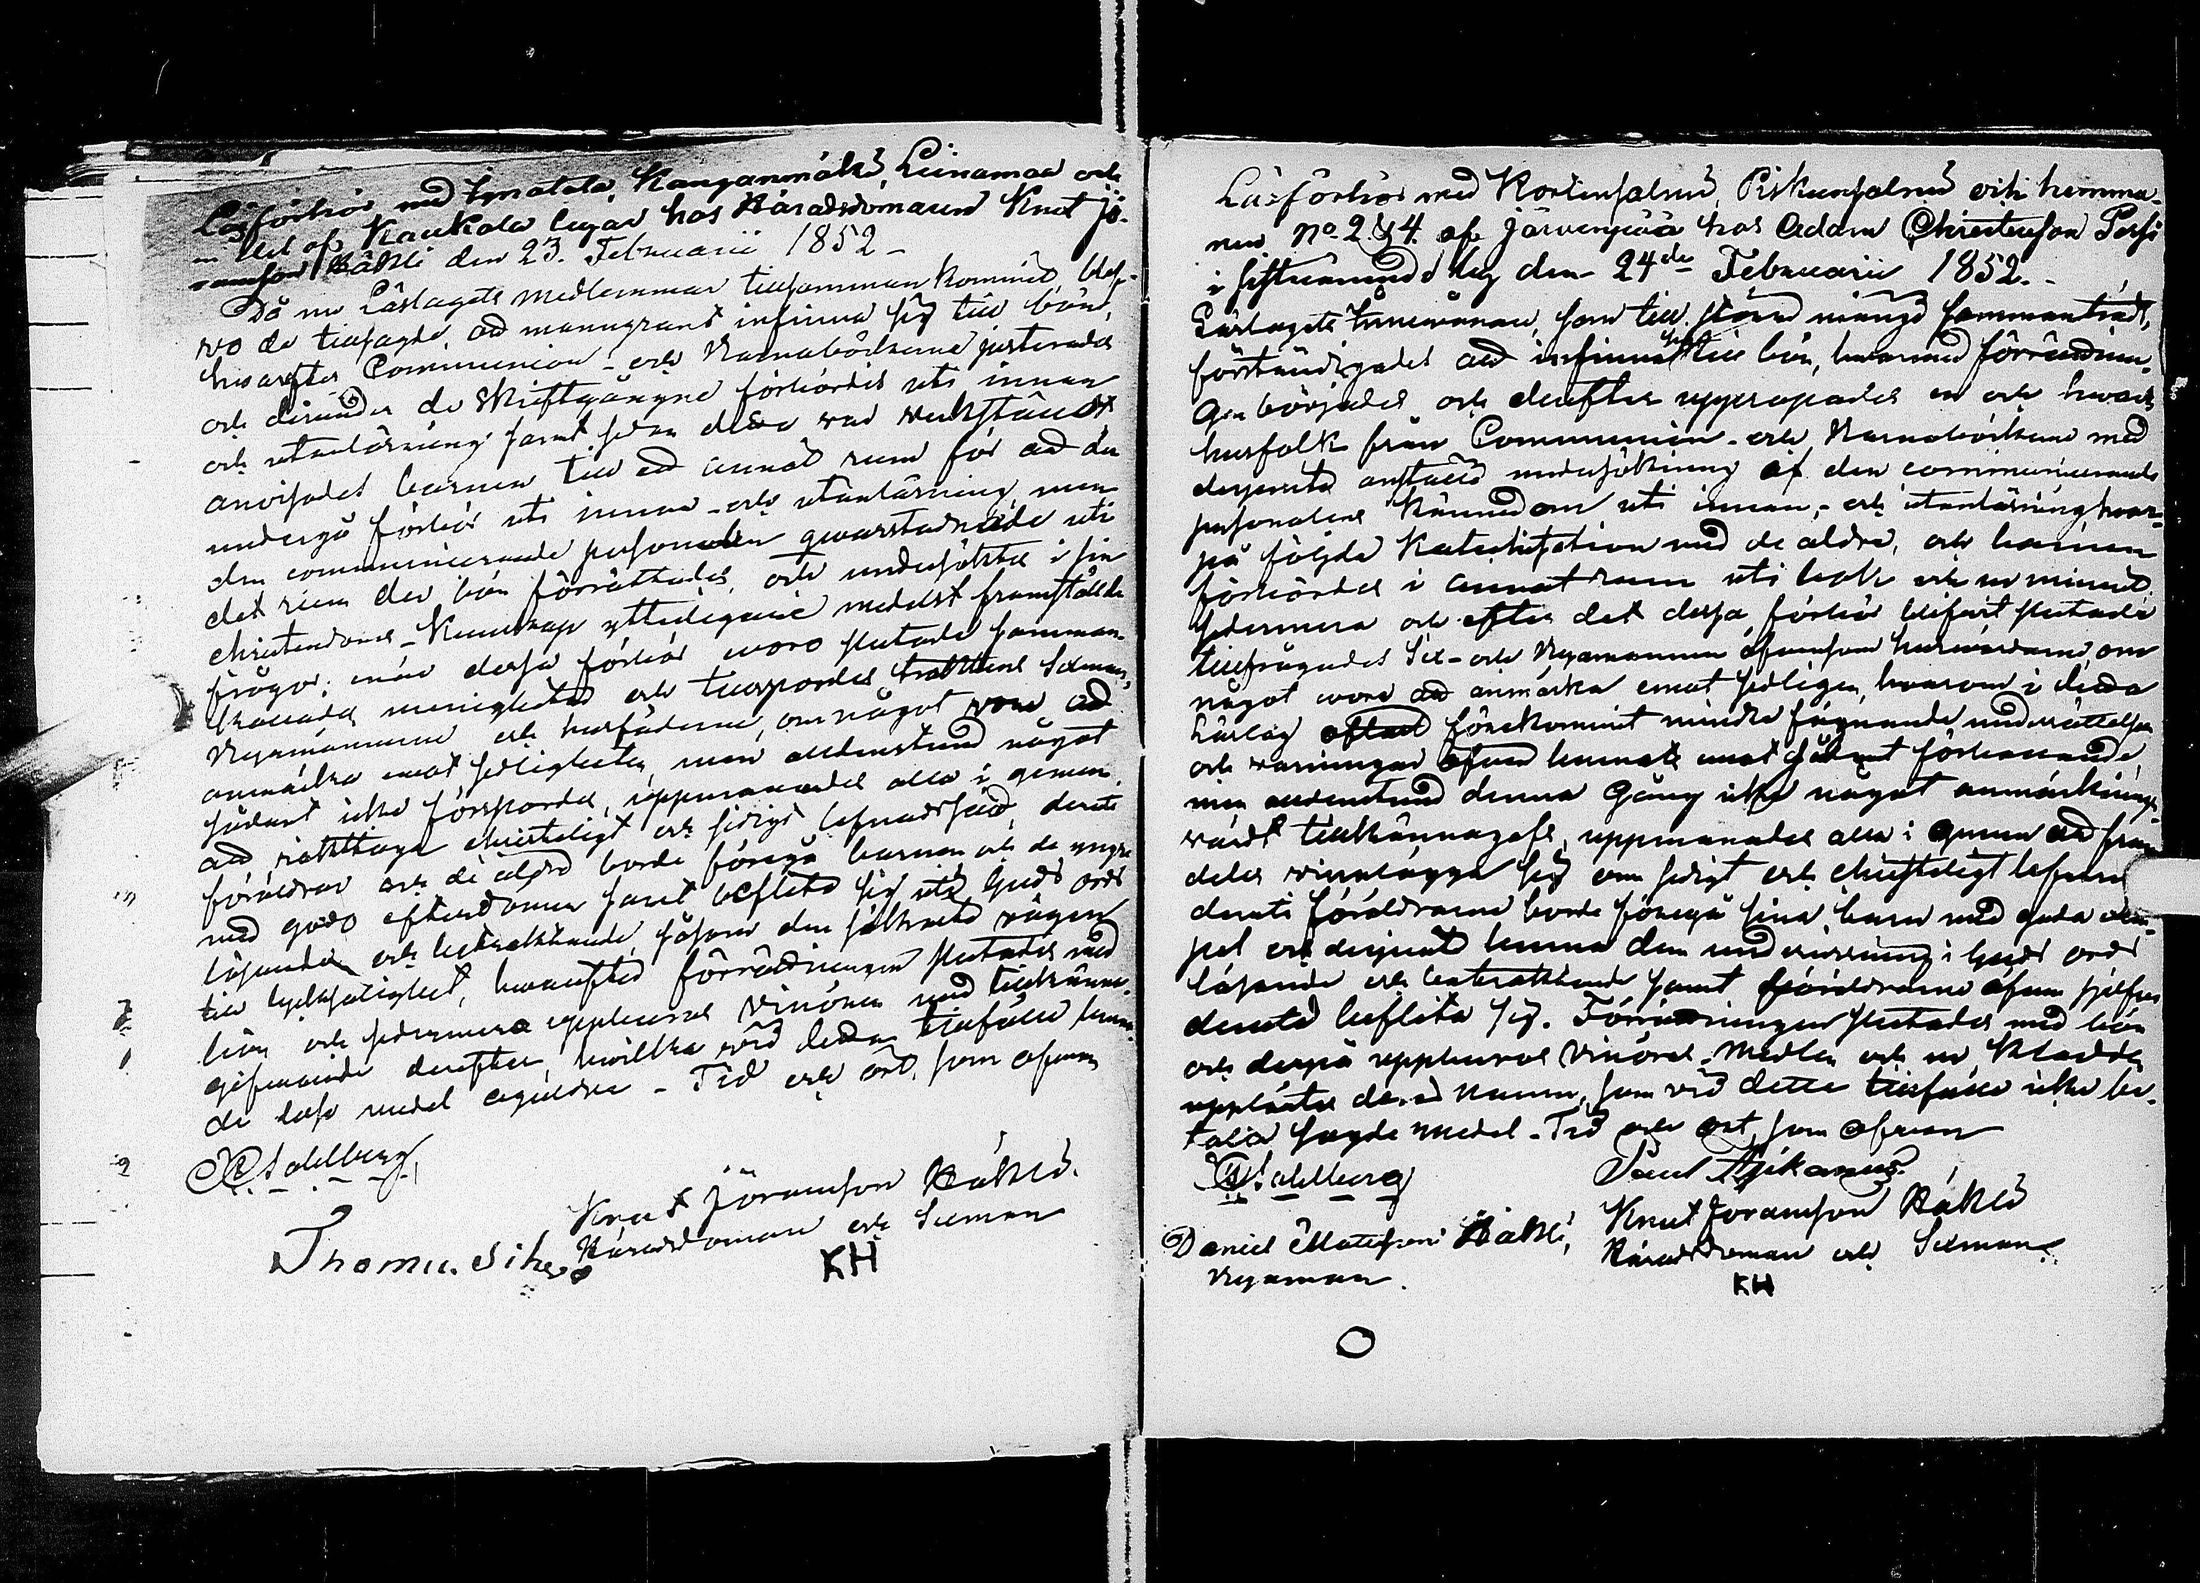 Läsförhör med Imatala, Kanganmäki, Liinamaa och
en del af Kaukola lagar hos Häradsdomaren Knut Jö-
ransson Häkli den 23. Februarii 1852 -
Då nu Läslagets medlemmar tillsamman kommit, blef-
vo de tillsagde, att manngrant infinna sig till bön,
hvarefter Communion- och Barnaböckerne justerades
och derunder de Skriftgångne förhördes uti innan
och utanläsning samt sedan detta var verkstäldt
anvisades barnen till ett annat rum för att der
undergå förhör uti innan- och utanläsning, men
den communicerande personalen qvarstadnade uti
det rum der bön förrättades, och undersöktes i sin
christendoms-Kunskap ytterligare medelst framstälda
frågor; när dessa förhör voro slutade samman-
kallades menigheten och tillspordes traktens Sexman,
Byamännerne och husfäderne, om något vore att
anmärka emot sedligheten, men alldenstund något
sådant icke förspordes, uppmanades alla i gemen
att iakttaga christeligt och sedigt lefnadssätt, deruti
föräldrar och de äldre borde föregå barnen och de yngre
med godo efterdömen samt beflita sig uti Guds ords
läsande och betraktande, såsom den säkraste vägen
till lycksalighet, hvarefter förrättningen slutades med
bön och sedermera uppbars Vinören med tillkänna-
gifvande derefter, hvilka vid detta tillfälle lemna-
de dess medel oguldne - Tid och ort, som ofvan
Sahlberg
Knut Jöransson Häkli
Häradsdomare och Sexman
Thomas
KH
Läsförhör med Kortensalmi, Piskunsalmi och hemma-
nen No 2 & 4. af Järvenpää hos Adam Christersson
i sistnämnde by den 24de Februarii 1852. -
Läslagets Innevånare, som till större mängd sammanträdt,
förständigades att infinna sig till bön, hvarmed förrättnin-
gen börjades och derefter uppropades en och hvar
husfolk från Communion- och Barnaböckerne med
derjemte anstäld undersökning af den communicerande
personalens kännedom uti innan- och utanläsning hvar-
på följde Katechisation med de äldre, och barnen
förhördes i annat rum uti bok och ur minnet.
Sedermera och efter det dessa förhör blifvit slutade
tillfrågades Sex- och Byamannen äfvensom husvärdarne om
något vore att anmärka emot sedligen, hvarom i detta
Läslag oftast förekommit mindre fägnande underrättelser
och varningar äfven lemnats emot sådant förhållande,
men alldenstund denna Gång icke något anmärknings-
värdt tillkännagafs, uppmanades alla i gemen att fram-
deles vinnlägga sig om sedigt och christeligt lefverne
deruti föräldrarne borde föregå sina barn med goda exem-
pel och derjemte lemna dem undervisning i Guds ords
läsande och betraktande samt föräldrarne äfven sjelfve
derutå beflita sig. Förrättningen slutades med bön
och derpå uppbars Vinöres-Medlen och
upplästes deras namn, som vid detta tillfälle icke be-
talte sagde medel - Tid och ort, som ofvan
Sahlberg
Knut Joransson Häkli
Häradsdomare och Sexman
Daniel Matsson Häkli,
Byaman.
KH